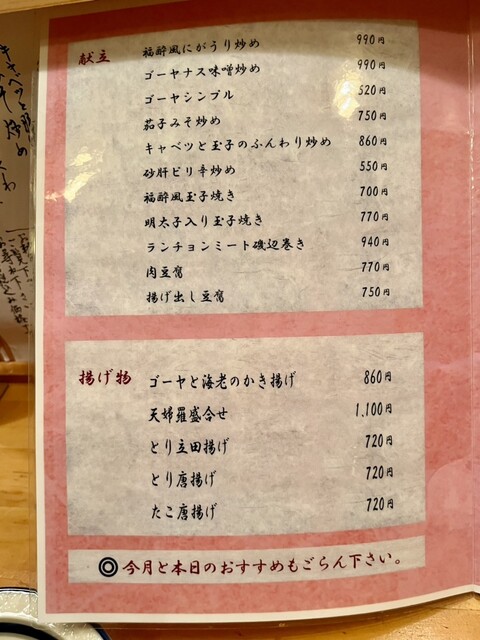 献立
福酔風にがうり炒め 990円
ゴーヤナス味噌炒め 990円
ゴーヤシンプル 520円
茄子みそ炒め 750円
キャベツと玉子のふんわり炒め 860円
砂肝ピリ辛炒め 550円
福酔風玉子焼き 700円
明太子入り玉子焼き 770円
ランチョンミート磯辺巻き 940円
肉豆腐 770円
揚げ出し豆腐 750円
揚げ物
ゴーヤと海老のかき揚げ 860円
天婦羅盛合せ 1,100円
とり立田揚げ 720円
とり唐揚げ 720円
たこ唐揚げ 720円
◎今月と本日のおすすめもごらん下さい。